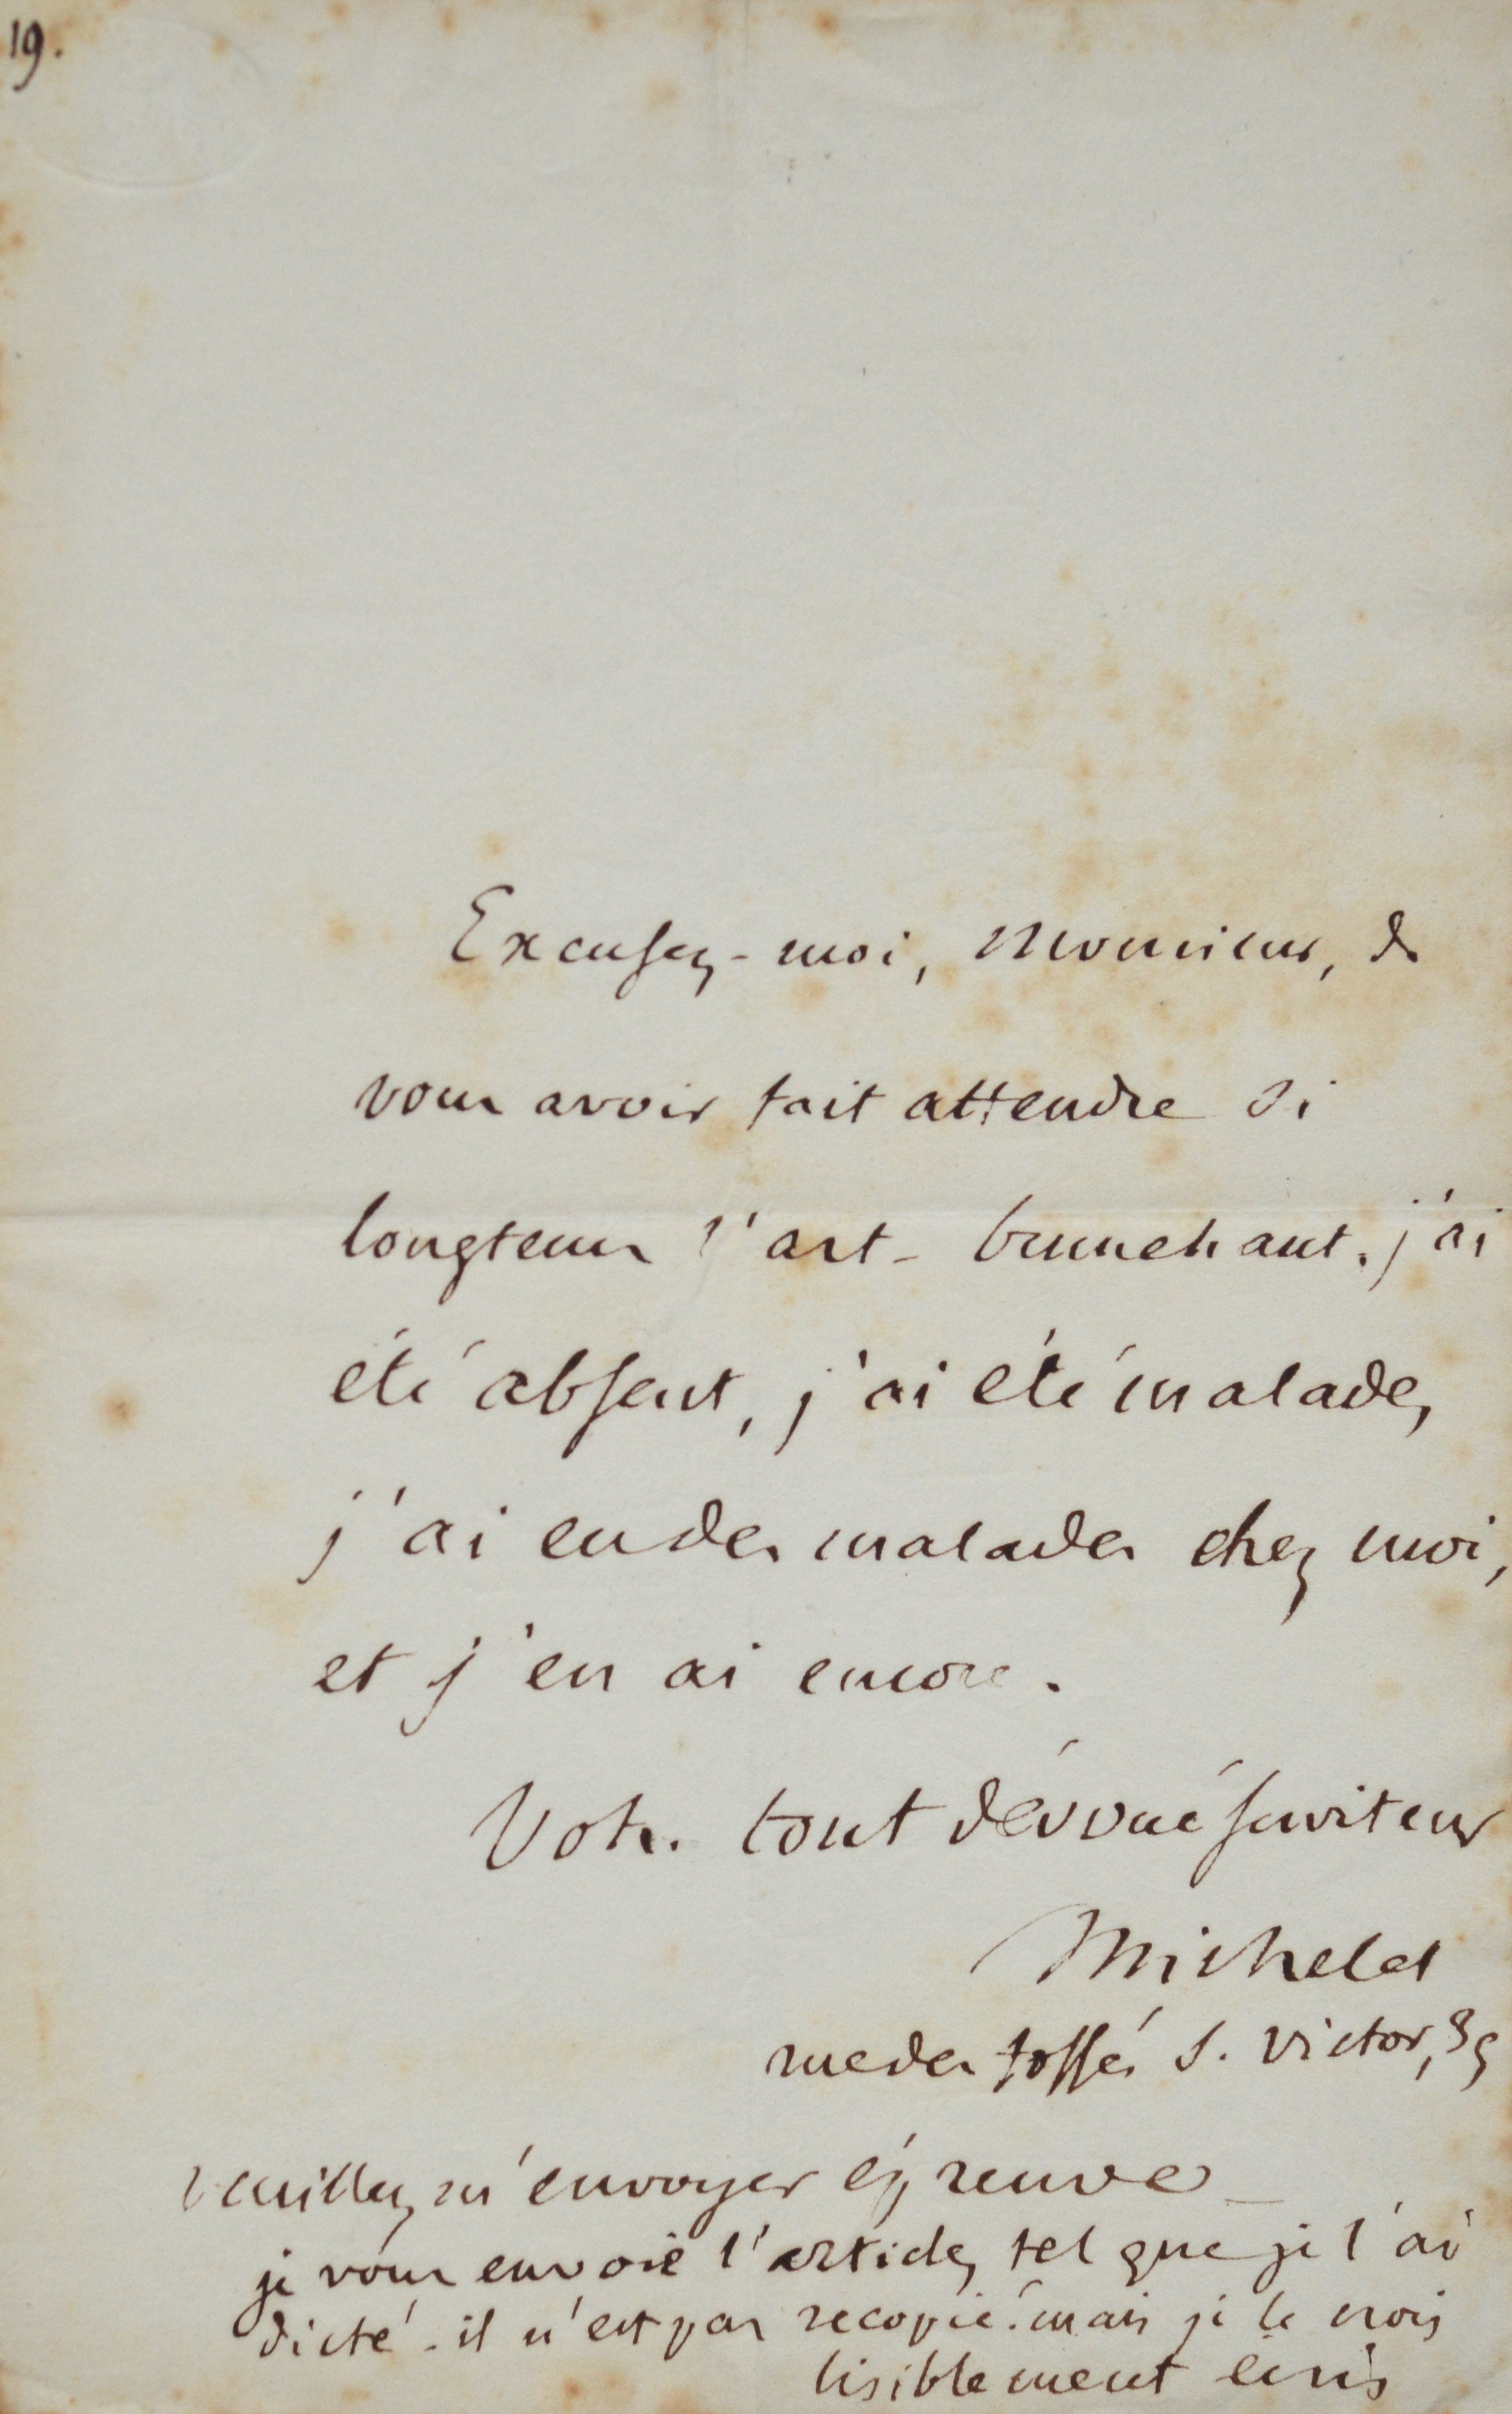 19.
Excusez-moi, Monsieur, de
vous avoir fait attendre si
longtems l'art. brunehaut. j'ai
été absent, j'ai été malade,
j'ai eu des malades chez moi,
et j'en ai encore.
Votre tout dévoué serviteur
Michelet
rue des fossés S. Victor, 39
veuillez m'envoyer épreuve_
je vous envoie l'article, tel que je l'ai
dicté - il n'est pas recopié. mais je le crois
lisiblement écrit